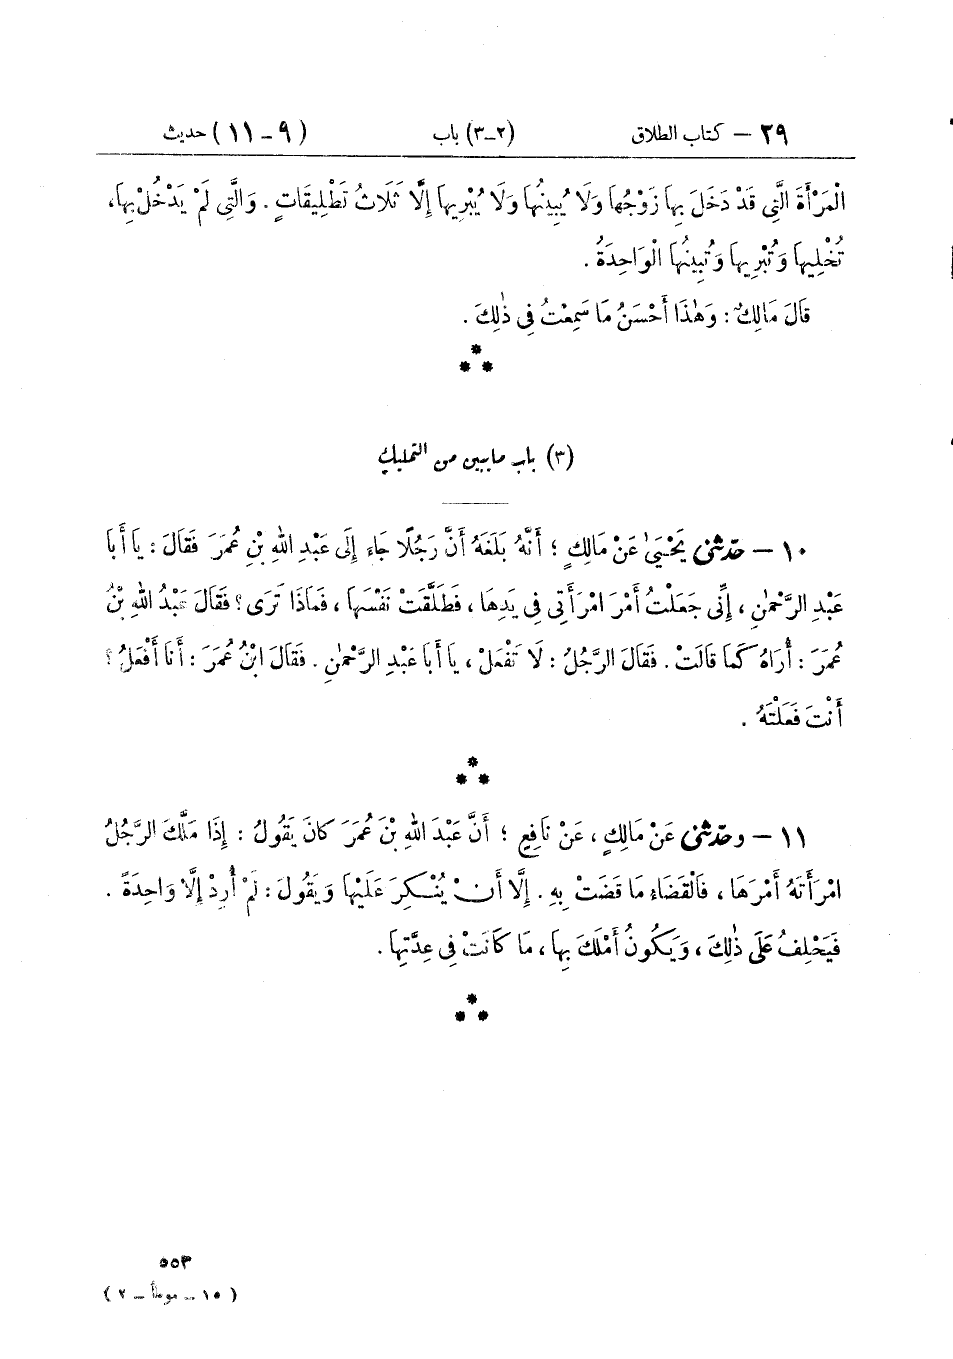 ٢٩ – كتاب الطلاق (٢-٣) باب (٩-١١) حديث
الْمَرْأَةَ الَّتِي قَدْ دَخَلَ بِهَا زَوْجُهَا وَلَا يُبِينُهَا وَلَا يُبْرِيهَا إِلَّا ثَلَاثُ تَطْلِيقَاتٍ . وَالَّتِي لَمْ يَدْخُلْ بِهَا،
تُخْلِيهَا وَتُبْرِيهَا وَتُبِينُهَا الْوَاحِدَةُ .
قَالَ مَالِكٌ : وَهٰذَا أَحْسَنُ مَا سَمِعْتُ فِي ذٰلِكَ .
(٣) باب مايبين من التمليك
١٠ – حدّثني يَحْيَىٰ عَنْ مَالِكٍ ؛ أَنَّهُ بَلَغَهُ أَنَّ رَجُلًا جَاءَ إِلَى عَبْدِ اللهِ بْنِ عُمَرَ فَقَالَ : يَا أَبَا
عَبْدِ الرَّحْمٰنِ ، إِنِّي جَعَلْتُ أَمْرَ امْرَأَتِي فِي يَدِهَا ، فَطَلَّقَتْ نَفْسَهَا ، فَمَاذَا تَرَى ؟ فَقَالَ عَبْدُ اللهِ بْنُ
عُمَرَ : أُرَاهُ كَمَا قَالَتْ . فَقَالَ الرَّجُلُ : لَا تَفْعَلْ ، يَا أَبَا عَبْدِ الرَّحْمٰنِ . فَقَالَ ابْنُ عُمَرَ : أَنَا أَفْعَلُ ؟
أَنْتَ فَعَلْتَهُ .
١١ – وحدّثني عَنْ مَالِكٍ ، عَنْ نَافِعٍ ؛ أَنَّ عَبْدَ اللهِ بْنَ عُمَرَ كَانَ يَقُولُ : إِذَا مَلَّكَ الرَّجُلُ
امْرَأَتَهُ أَمْرَهَا ، فَالْقَضَاءُ مَا قَضَتْ بِهِ . إِلَّا أَنْ يُنْكِرَ عَلَيْهَا وَيَقُولَ : لَمْ أُرِدْ إِلَّا وَاحِدَةً .
فَيَحْلِفُ عَلَى ذٰلِكَ ، وَيَكُونُ أَمْلَكَ بِهَا ، مَا كَانَتْ فِي عِدَّتِهَا .
٥٥٣
( ١٥ – موطأ – ٢ )